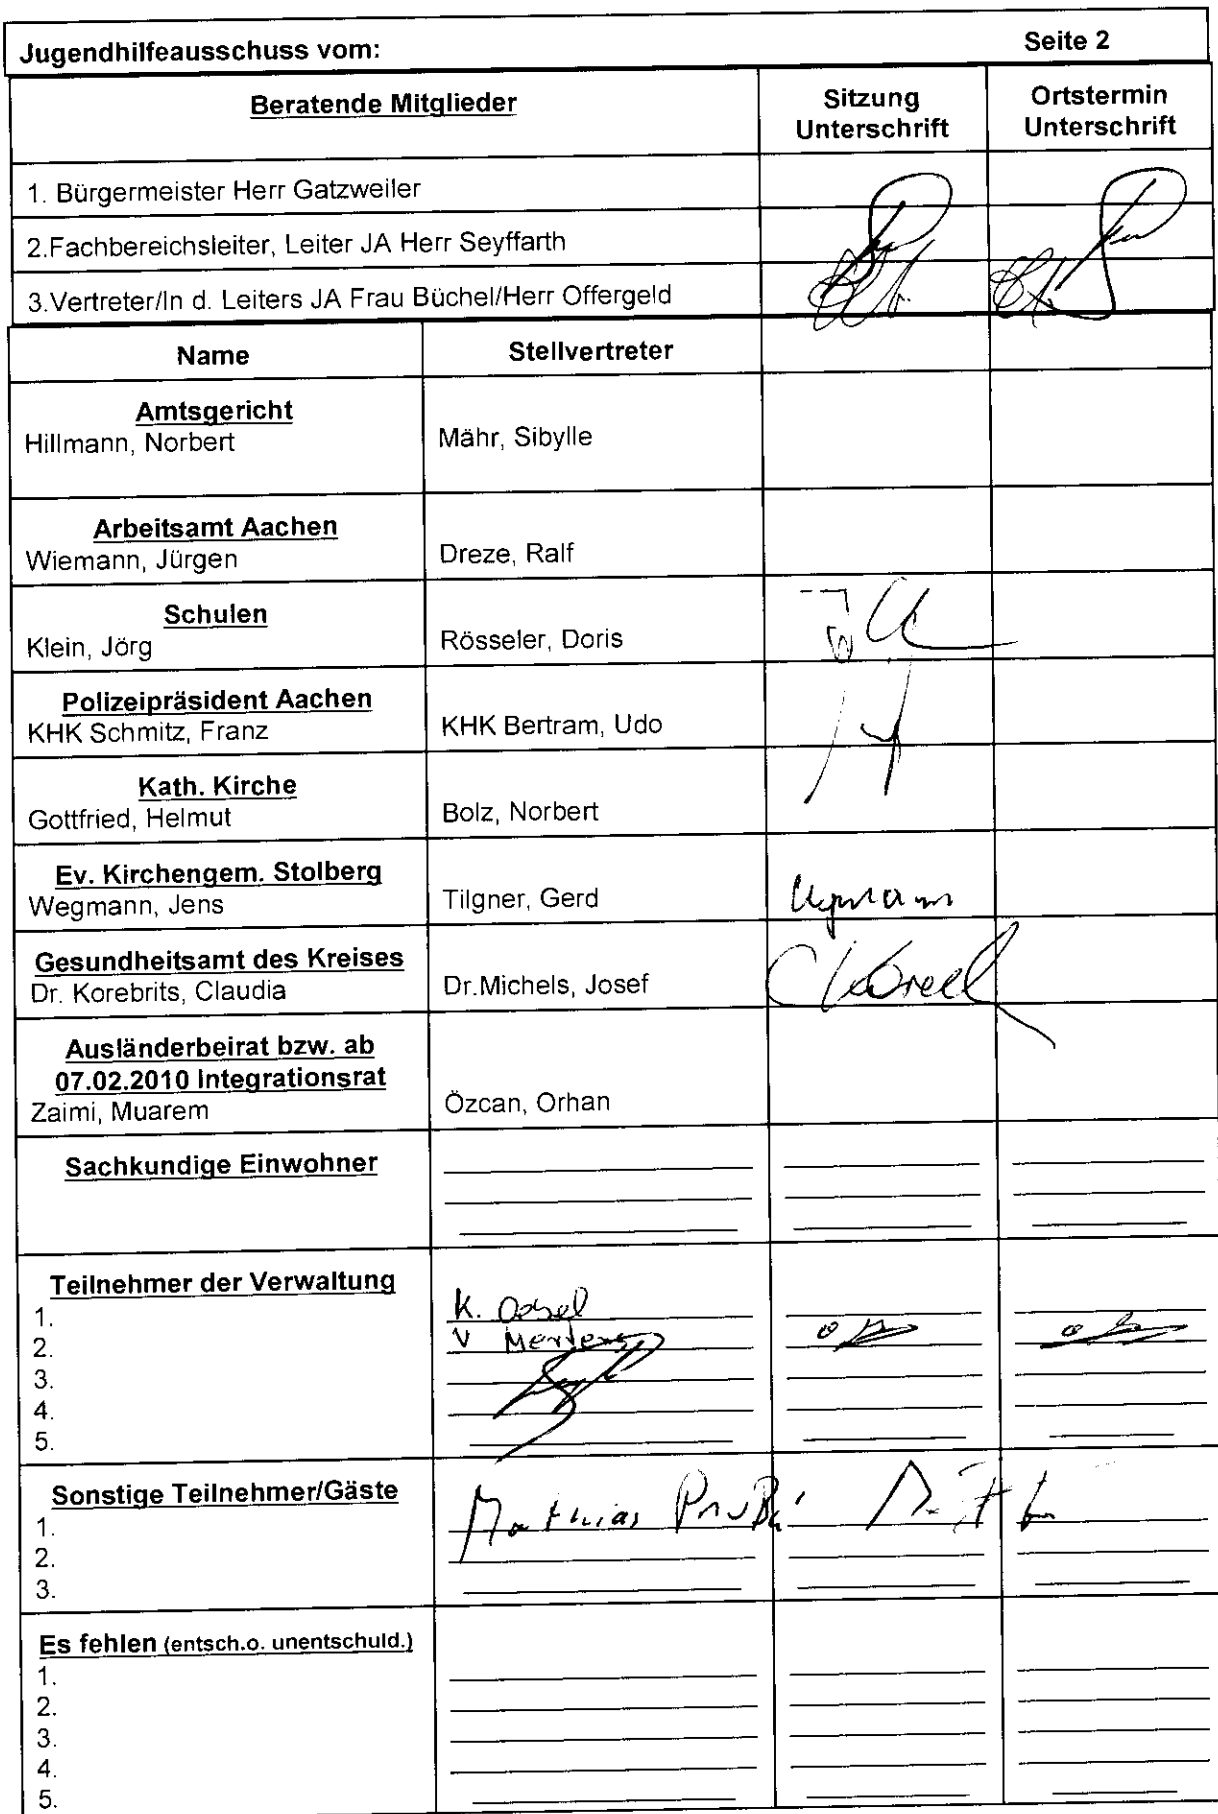 Jugendhilfeausschuss vom: Seite 2
Beratende Mitglieder
Sitzung Unterschrift
Ortstermin Unterschrift
1. Bürgermeister Herr Gatzweiler
2.Fachbereichsleiter, Leiter JA Herr Seyffarth
3.Vertreter/In d. Leiters JA Frau Büchel/Herr Offergeld
Name Stellvertreter
Amtsgericht
Hillmann, Norbert Mähr, Sibylle
Arbeitsamt Aachen
Wiemann, Jürgen Dreze, Ralf
Schulen
Klein, Jörg Rösseler, Doris
Polizeipräsident Aachen
KHK Schmitz, Franz KHK Bertram, Udo
Kath. Kirche
Gottfried, Helmut Bolz, Norbert
Ev. Kirchengem. Stolberg
Wegmann, Jens Tilgner, Gerd
Gesundheitsamt des Kreises
Dr. Korebrits, Claudia Dr.Michels, Josef
Ausländerbeirat bzw. ab
07.02.2010 Integrationsrat
Zaimi, Muarem Özcan, Orhan
Sachkundige Einwohner
Teilnehmer der Verwaltung
1. K.
2. V Mertens
3.
4.
5.
Sonstige Teilnehmer/Gäste
1. Matthias
2.
3.
Es fehlen (entsch.o. unentschuld.)
1.
2.
3.
4.
5.